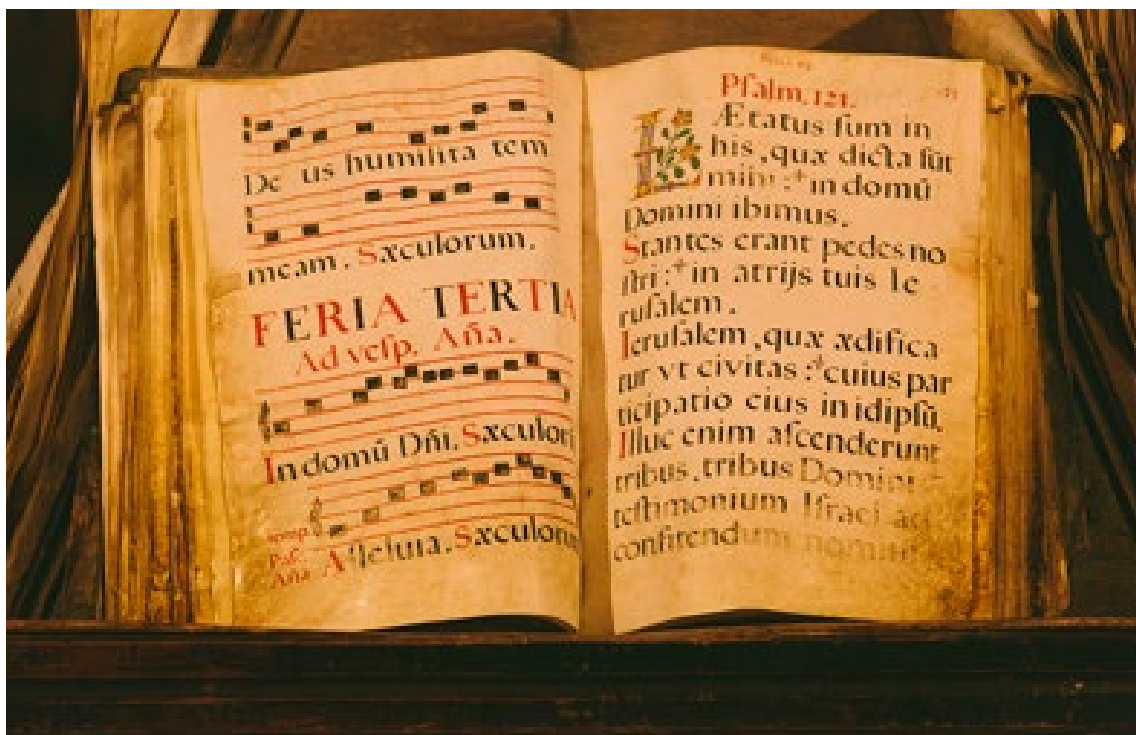 De us humilita tem
meam. Sæculorum.
FERIA TERTIA
Ad vesp. Aña.
In domũ Dñi. Sæculoru
temp.
Pas.
Aña Alleluia. Sæculorum
Psalm. 121.
LÆtatus sum in
his, quæ dicta sũt
mihi :+ in domũ
Domini ibimus.
Stantes erant pedes no
stri :+ in atrijs tuis Ie
rusalem.
Ierusalem, quæ ædifica
tur vt civitas :+ cuius par
ticipatio eius in idipsũ.
Illuc enim ascenderunt
tribus, tribus Domini
testimonium Israel ad
confitendum nomini